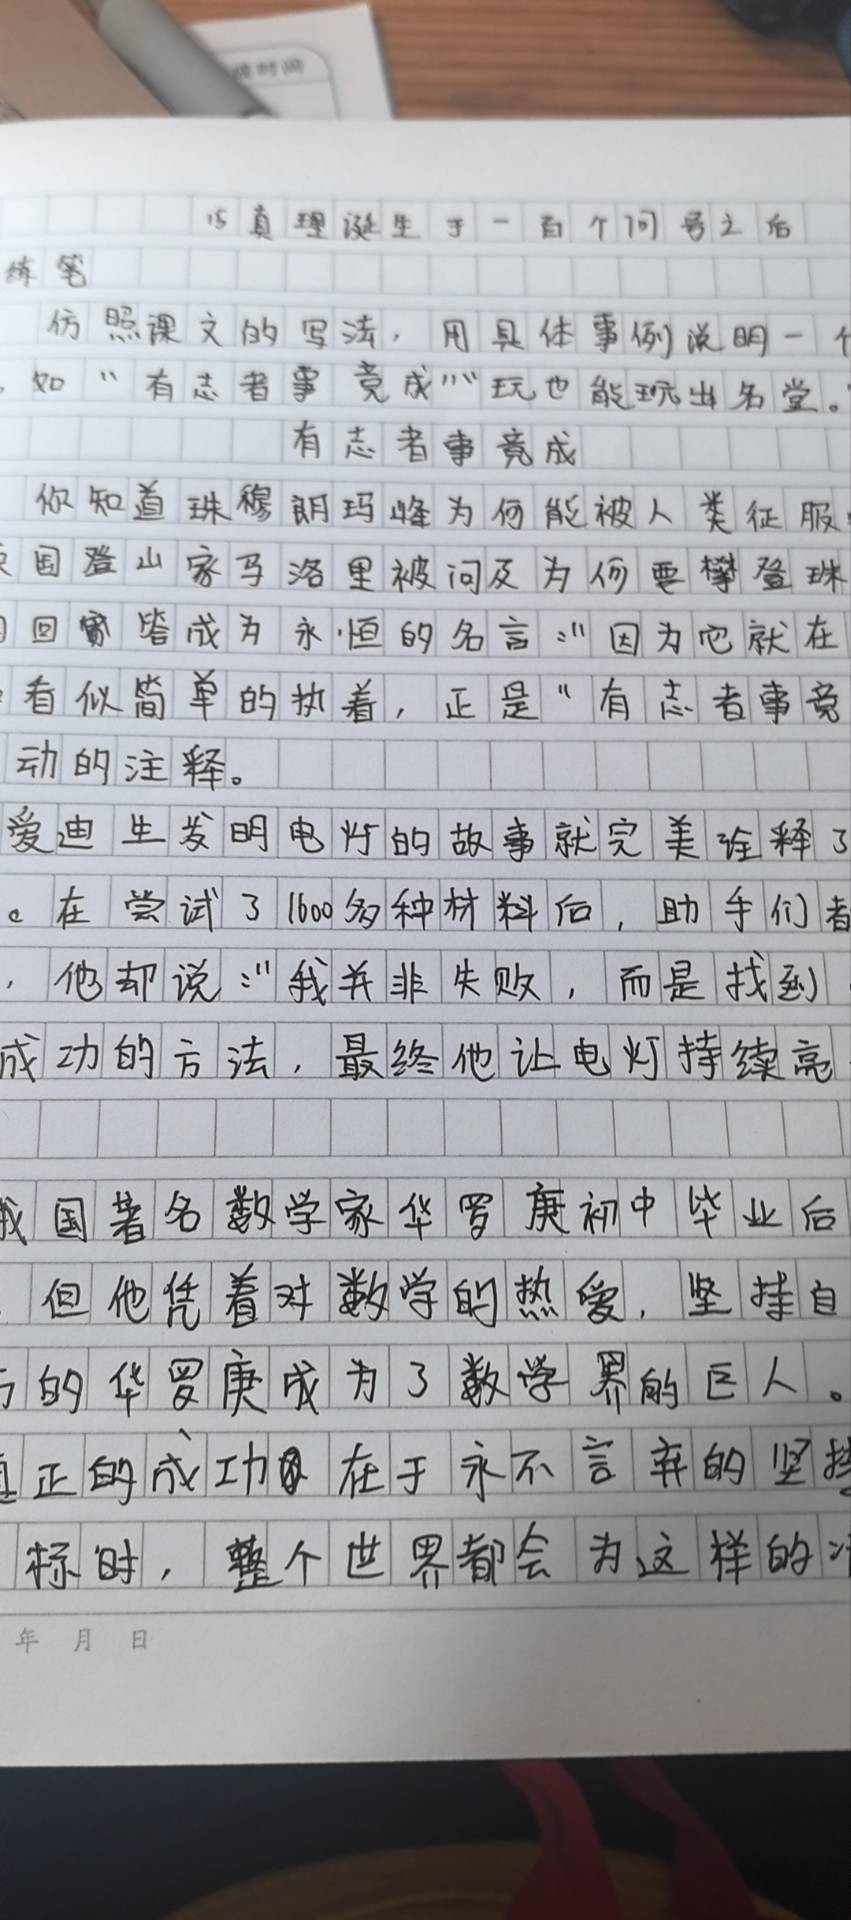 时间
15真理诞生于一百个问号之后
练笔
仿照课文的写法，用具体事例说明一个
，如“有志者事竟成”“玩也能玩出名堂。”
有志者事竟成
你知道珠穆朗玛峰为何能被人类征服
国登山家马洛里被问及为何要攀登珠
回答成为永恒的名言：“因为它就在
看似简单的执着，正是“有志者事竟
动的注释。
爱迪生发明电灯的故事就完美诠释了
。在尝试了1600多种材料后，助手们者
，他却说：“我并非失败，而是找到
成功的方法，最终他让电灯持续亮
我国著名数学家华罗庚初中毕业后
但他凭着对数学的热爱，坚持自
的华罗庚成为了数学界的巨人。
真正的成功在于永不言弃的坚持
标时，整个世界都会为这样的
年 月 日